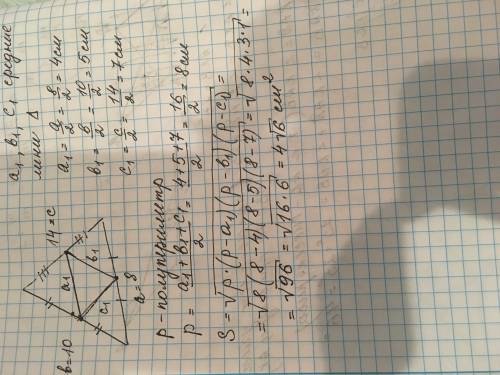 a₁, b₁, c₁ средние
линии Δ
a₁ = a/2 = 8/2 = 4см
b₁ = b/2 = 10/2 = 5см
c₁ = c/2 = 14/2 = 7см
b=10
14=c
a₁
b₁
c₁
a=8
p - полупериметр
p = (a₁+b₁+c₁)/2 = (4+5+7)/2 = 16/2 = 8см
S = √(p·(p-a₁)(p-b₁)(p-c₁)) =
= √(8(8-4)(8-5)(8-7)) = √(8·4·3·1) =
= √96 = √(16·6) = 4√6 см²